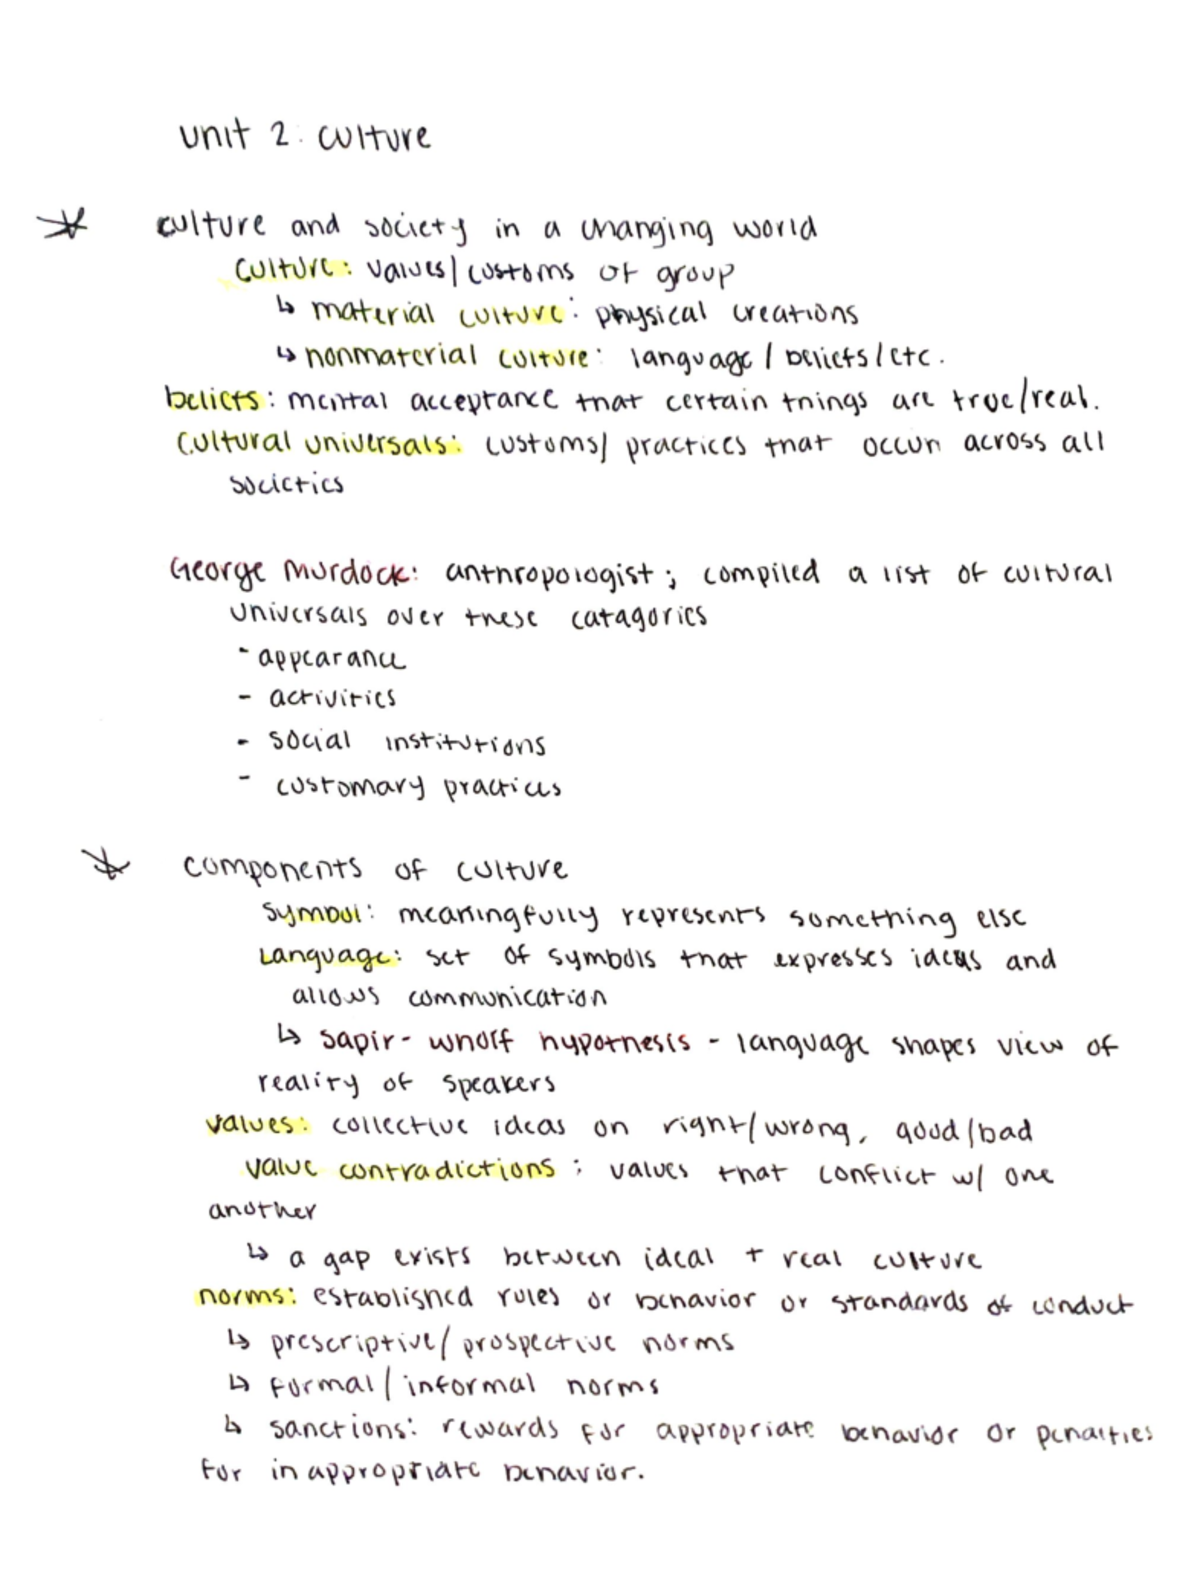 unit 2: culture
culture and society in a changing world
culture: values/customs of group
↳ material culture: physical creations
↳ nonmaterial culture: language / beliefs / etc.
beliefs: mental acceptance that certain things are true/real.
cultural universals: customs/ practices that occur across all
societies
George Murdock: anthropologist; compiled a list of cultural
universals over these catagories
- appearance
- activities
- social institutions
- customary practices
components of culture
symbol: meaningfully represents something else
Language: set of symbols that expresses ideas and
allows communication
↳ sapir-whorf hypothesis - language shapes view of
reality of speakers
values: collective ideas on right/wrong, good/bad
value contradictions: values that conflict w/ one
another
↳ a gap exists between ideal + real culture
norms: established rules or behavior or standards of conduct
↳ prescriptive/ prospective norms
↳ formal/informal norms
↳ sanctions: rewards for appropriate behavior or penalties
for inappropriate behavior.